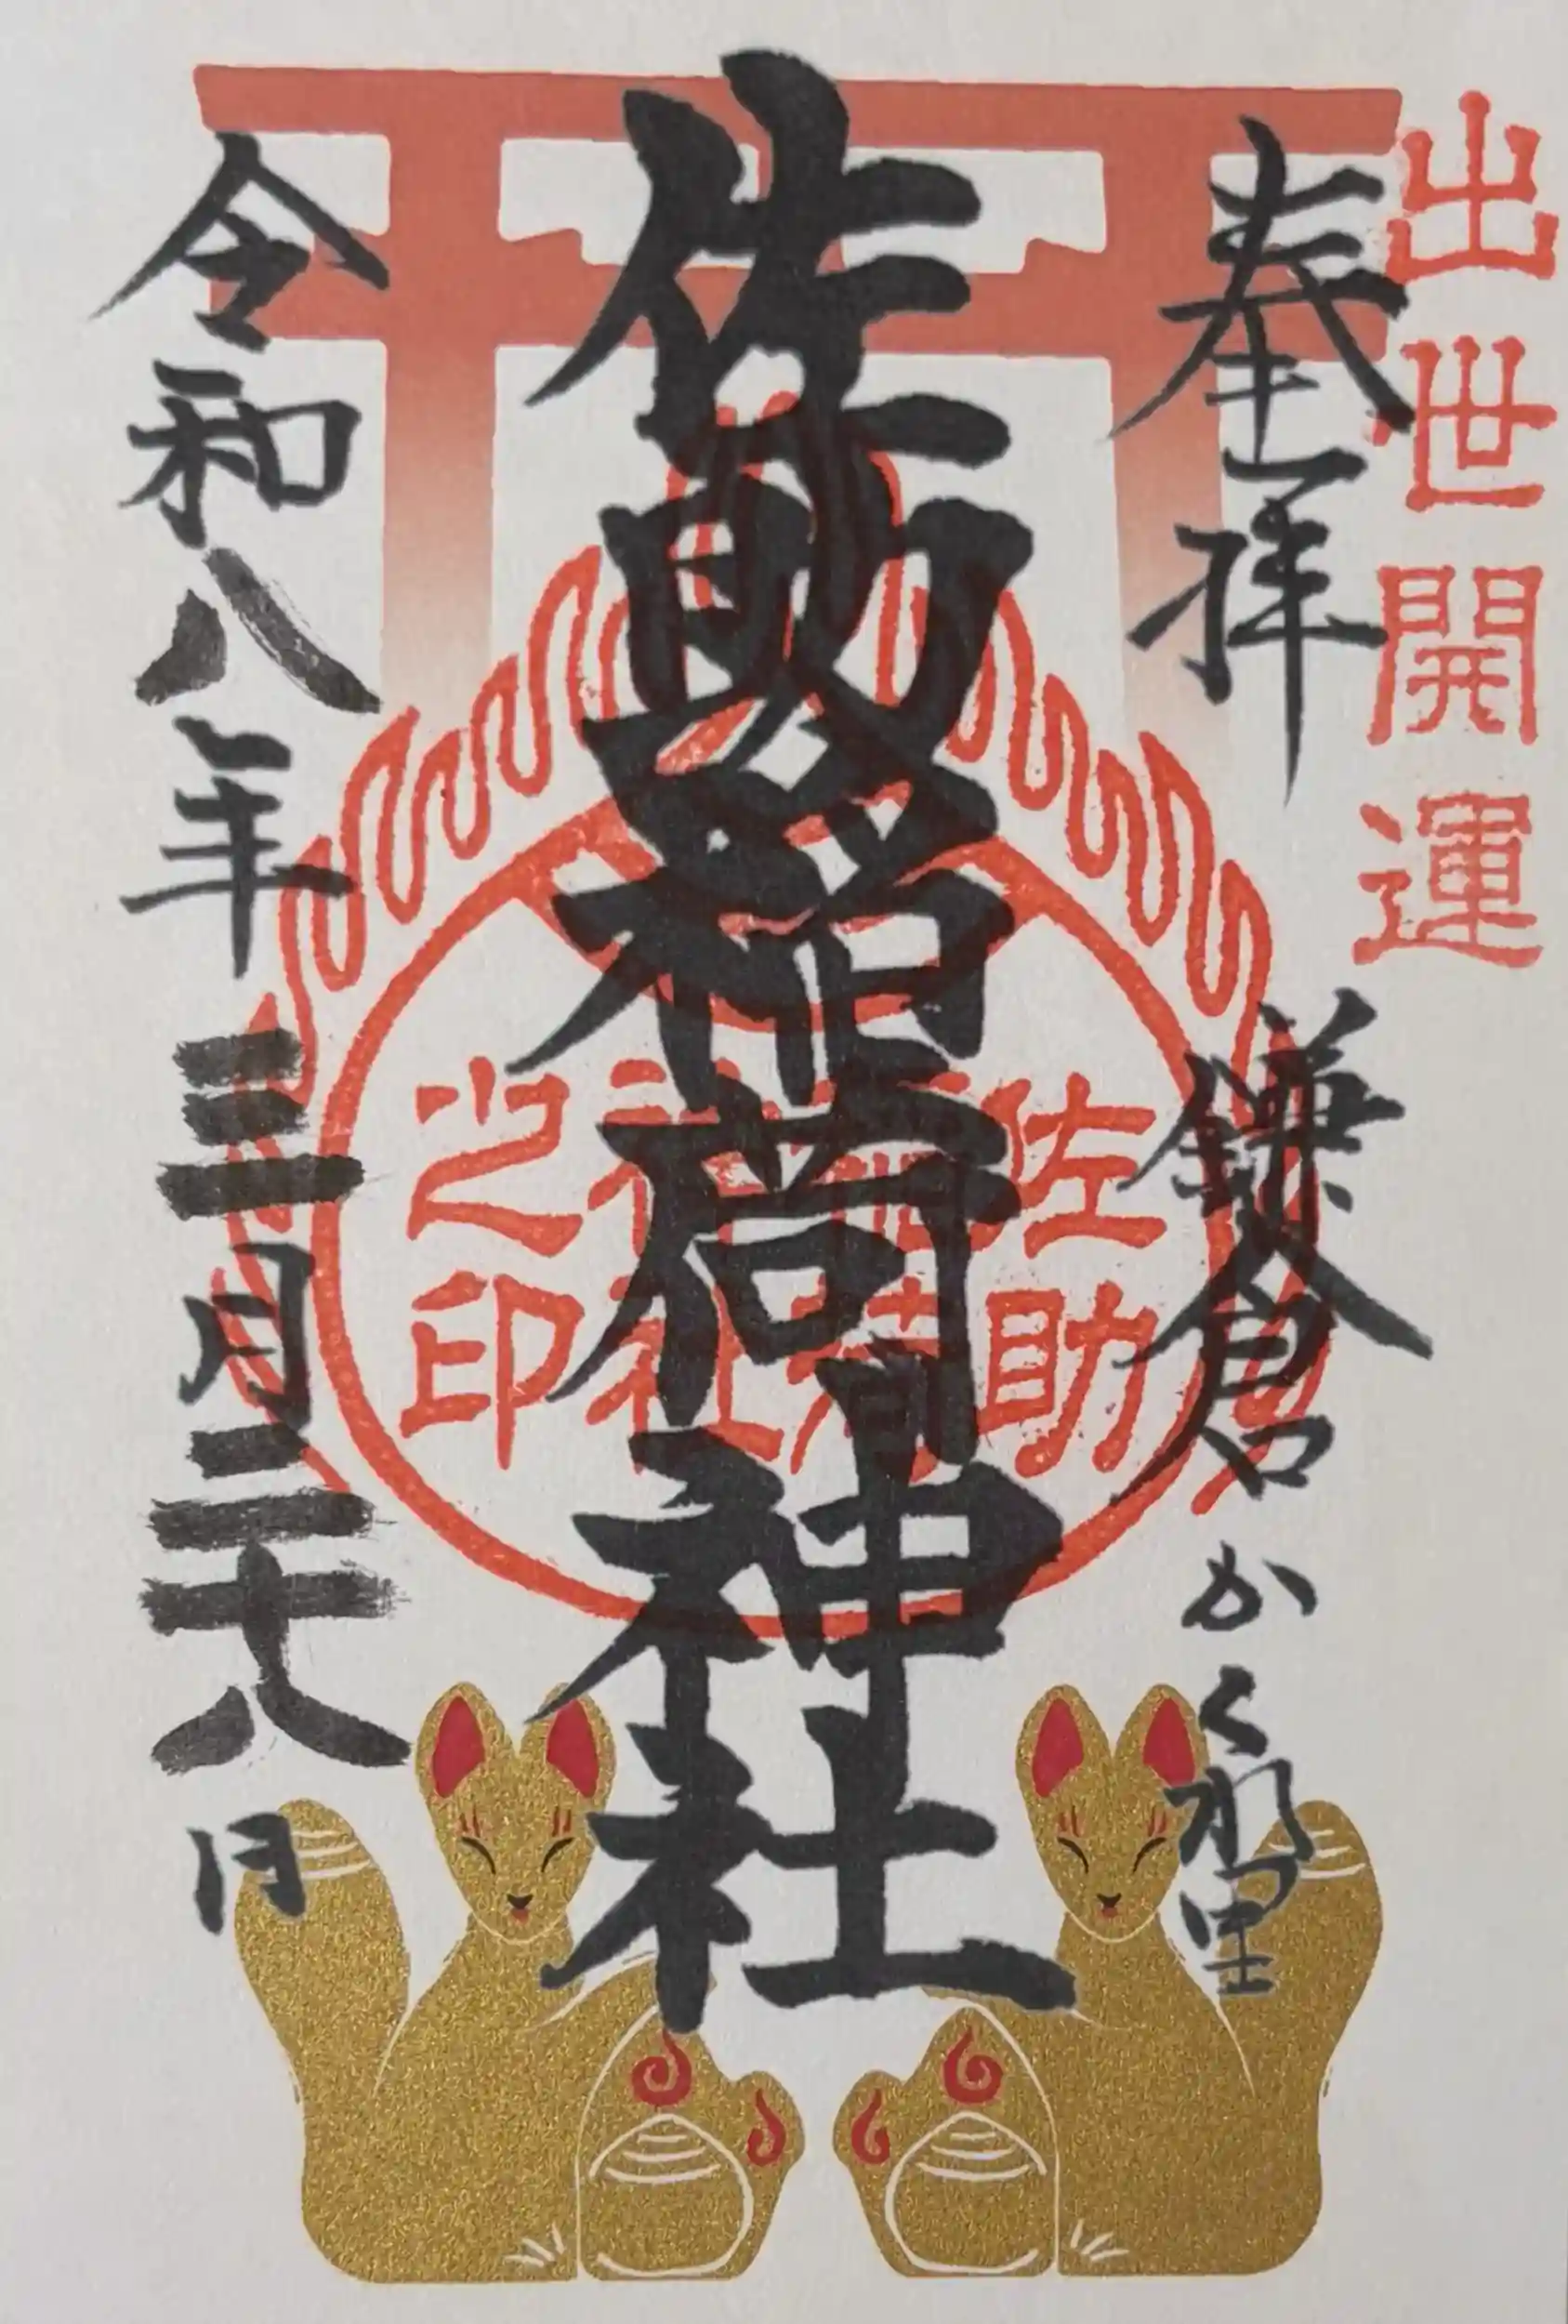 出世開運
奉拝 鎌倉かくれ里
佐助稲荷神社
佐助
稲荷
神社
之印
令和八年三月二十八日